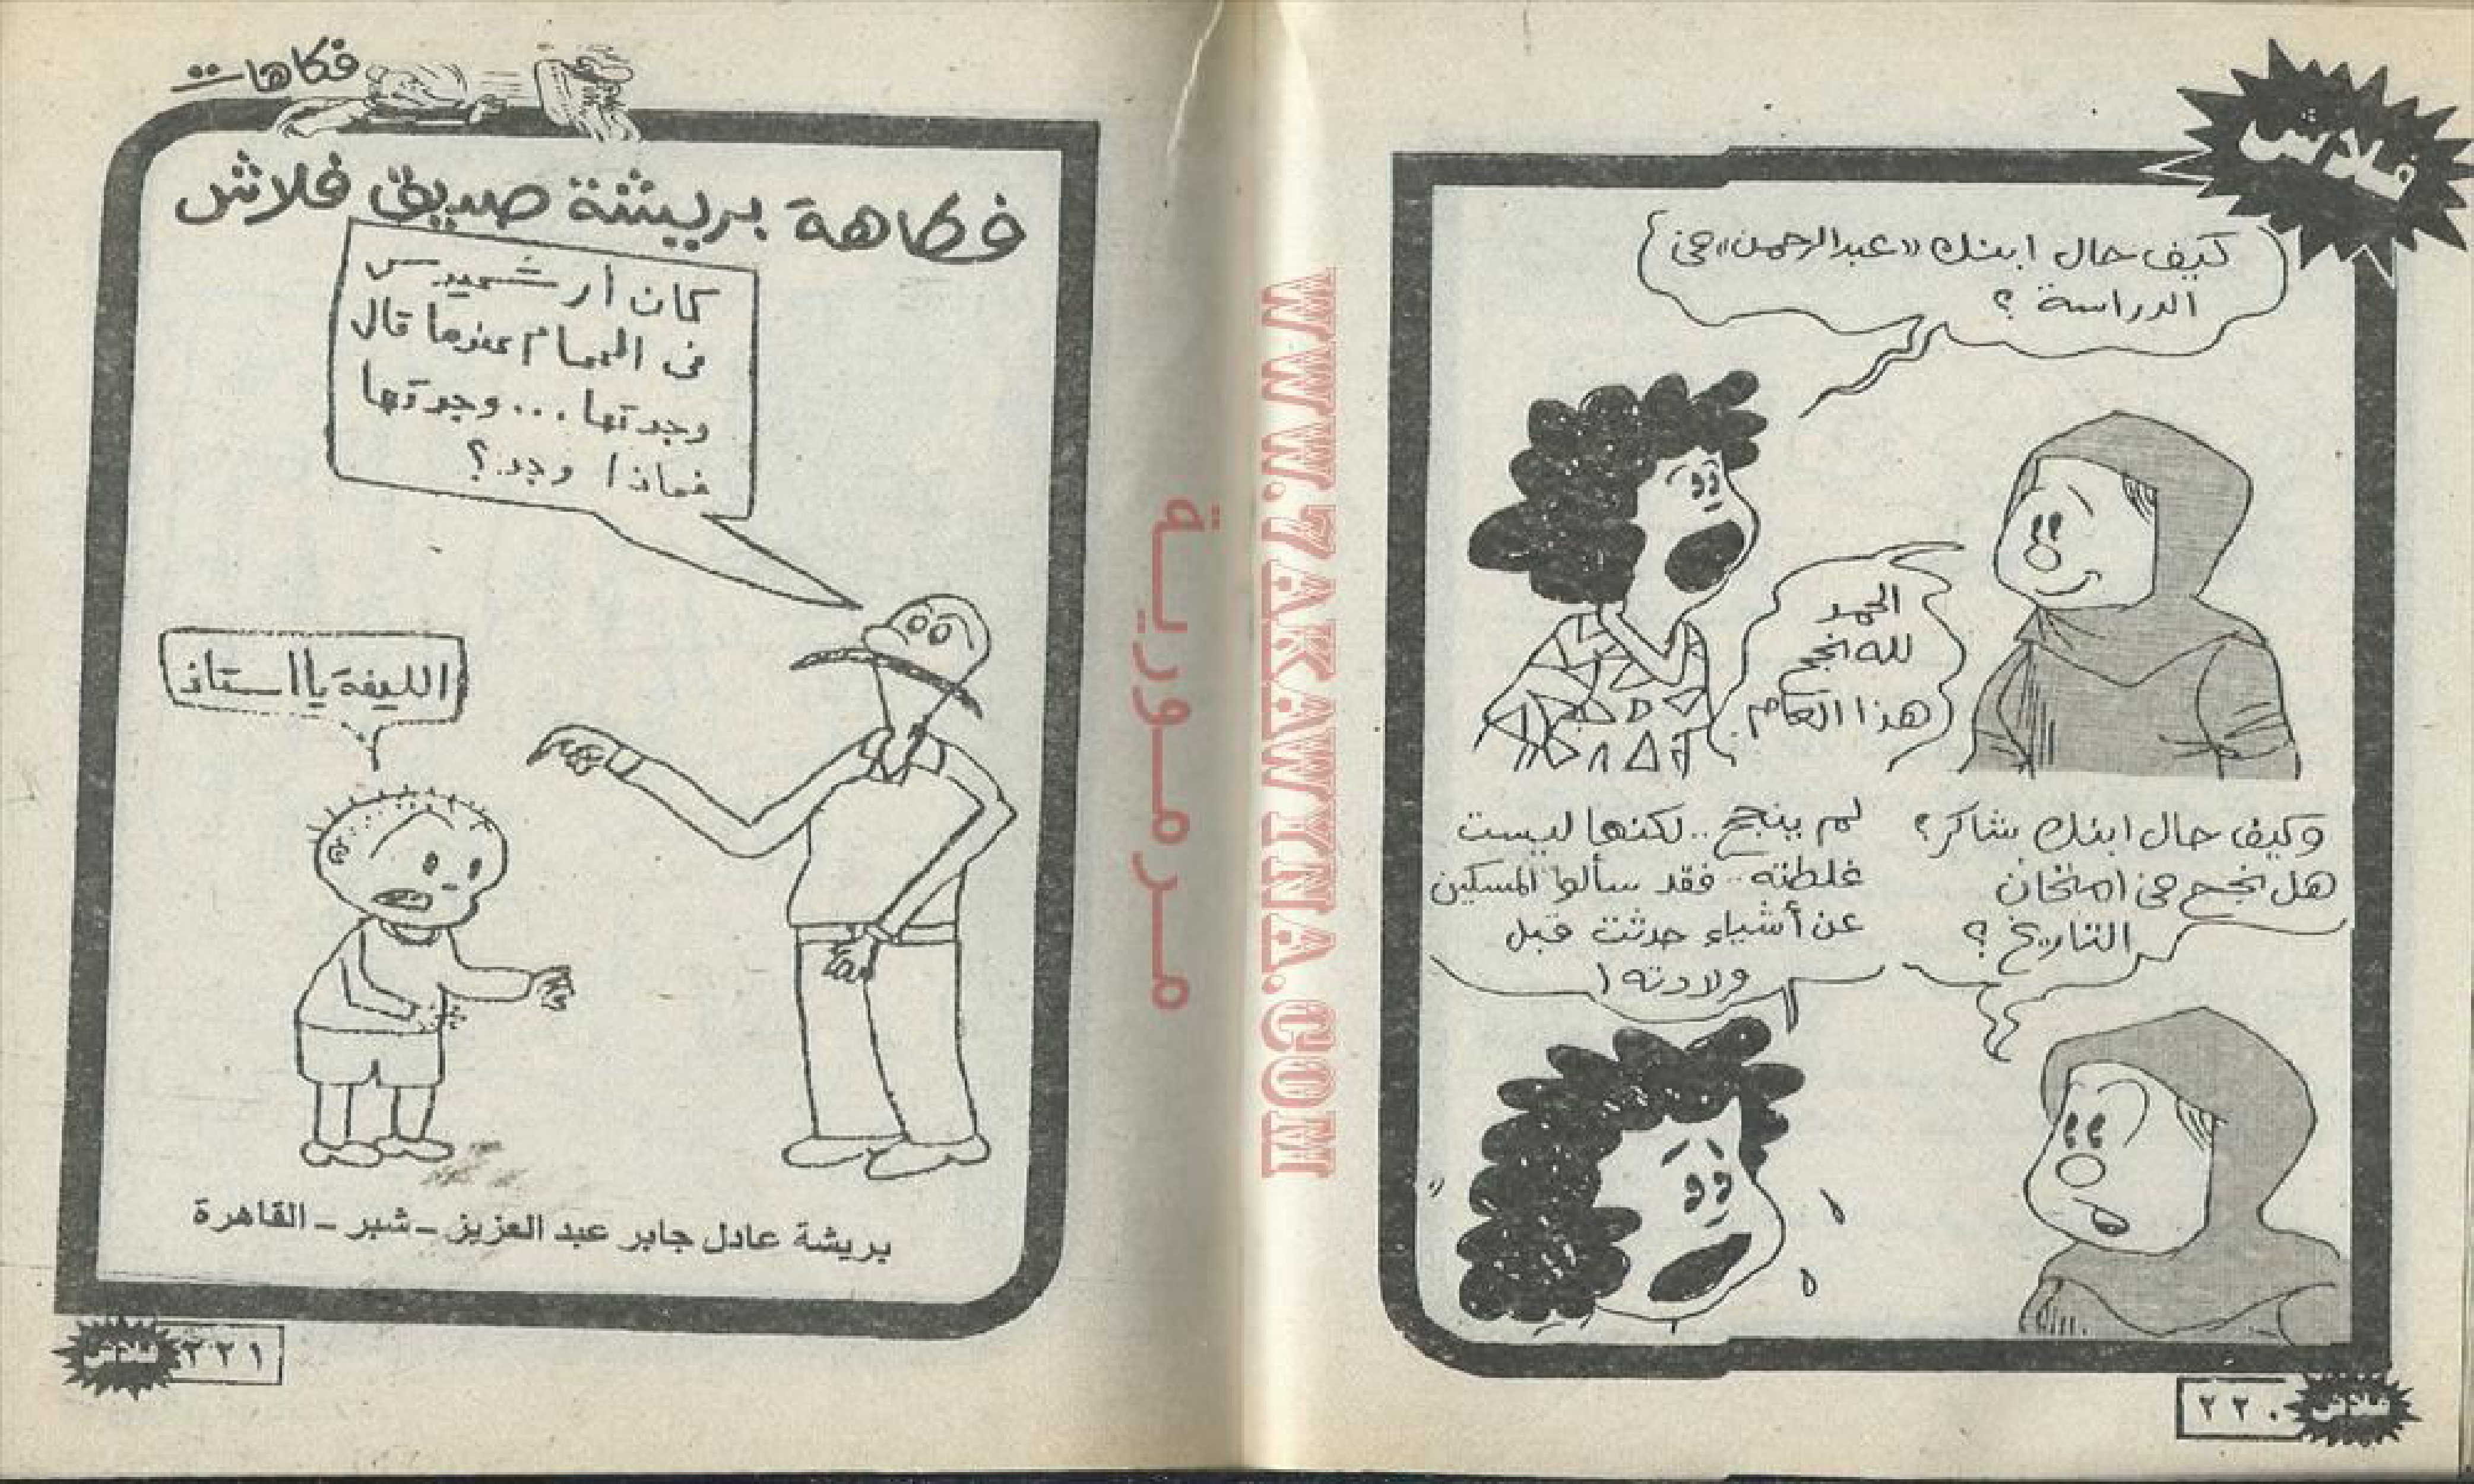 فلاش
كيف حال ابنك «عبدالرحمن» فى
الدراسة ؟
الحمد
لله نجح
هذا العام
وكيف حال ابنك شاكر؟
هل نجح فى امتحان
التاريخ ؟
لم ينجح .. لكنها ليست
غلطته .. فقد سألوا المسكين
عن أشياء حدثت قبل
ولادته !
٢٢٠
فلاش
فكاهات
فكاهة بريشة صديق فلاش
كان أرشميدس
فى الحمام عندما قال
وجدتها ... وجدتها
فماذا وجد ؟
الليفة يا استاذ
بريشة عادل جابر عبد العزيز ــ شبر ــ القاهرة
٢٢١
فلاش
مـرمـوريـة
WWW.ZAKAWTNA.COM